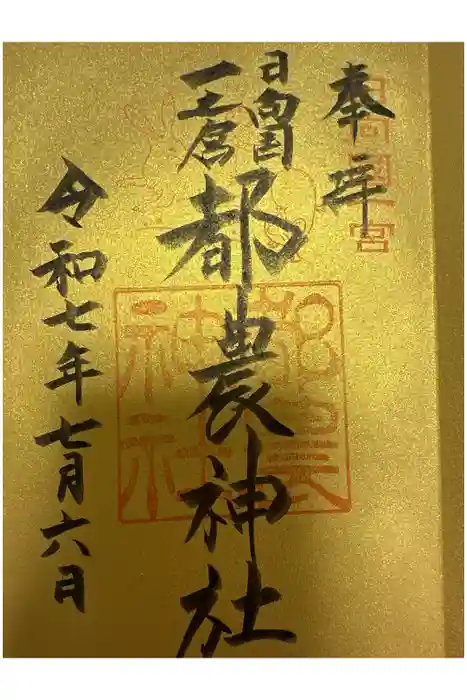 奉拝
日向國一宮
日向国
一之宮
都農神社
都農
神社
令和七年七月六日